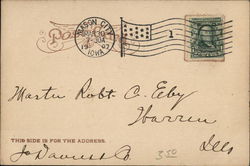 MASON CITY
7-30A
IOWA
1
Master Robt. C. Eby
Warren
Ills
THIS SIDE IS FOR THE ADDRESS.
Jo Daviess Co
350